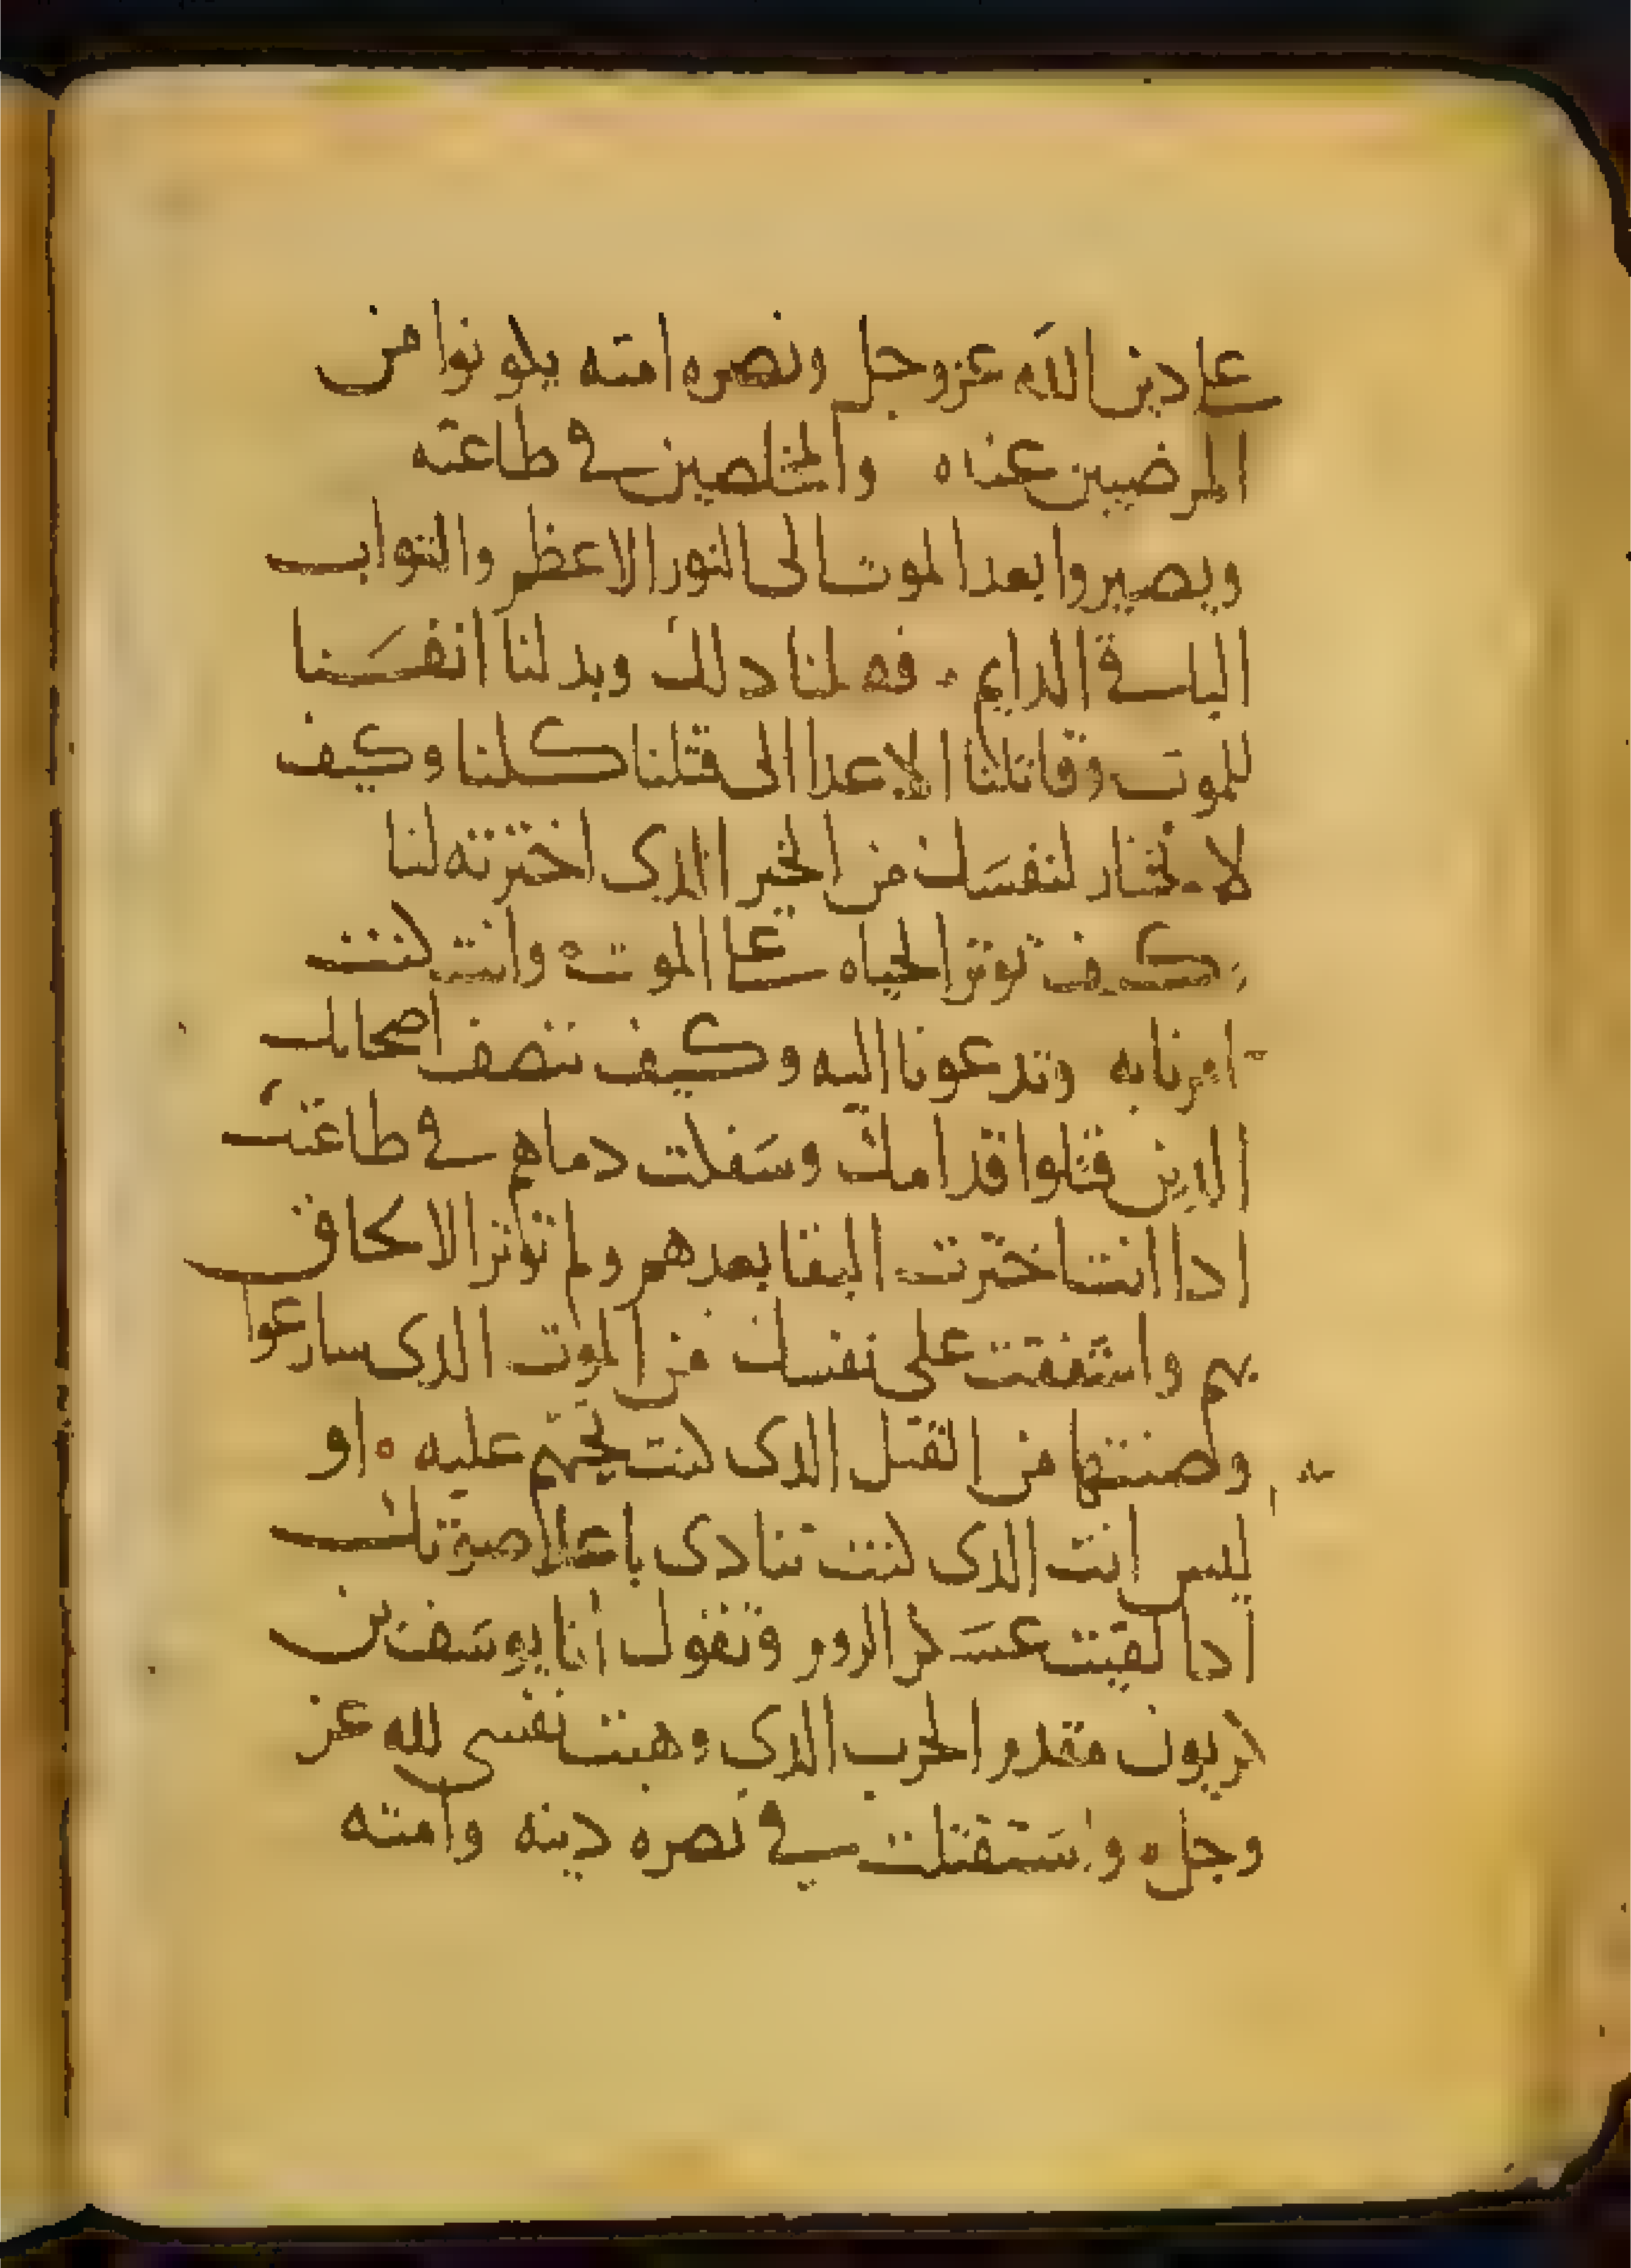 على دين الله عز وجل ونصره امته يكونوا من
المرضيين عنده والمخلصين في طاعته
ويصيروا بعد الموت الى النور الاعظم والثواب
الباقي الدايم فعلنا دلك وبدلنا انفسنا
للموت وقاتلنا الاعدا الى قتلنا كلنا وكيف
لا تختار لنفسك من الخير الدى اخترته لنا
وكيف توثر الحياه على الموت وانت كنت
امرتنا به وتدعونا اليه وكيف تنصف اصحابك
الدين قتلوا قدامك وسفكت دماهم في طاعتك
ادا انت اخترت البقا بعدهم ولم توثر الالحاق
بهم واشفقت على نفسك من الموت الدى سارعوا
وصنتها من القتل الدى كنت تحثهم عليه او
ليس انت الدى كنت تنادى باعلا صوتك
ادا لقيت عسكر الروم وتقول انا يوسف بن
كربون مقدم الحرب الدى وهبت نفسى لله عز
وجل واستقتلت في نصره دينه وامته